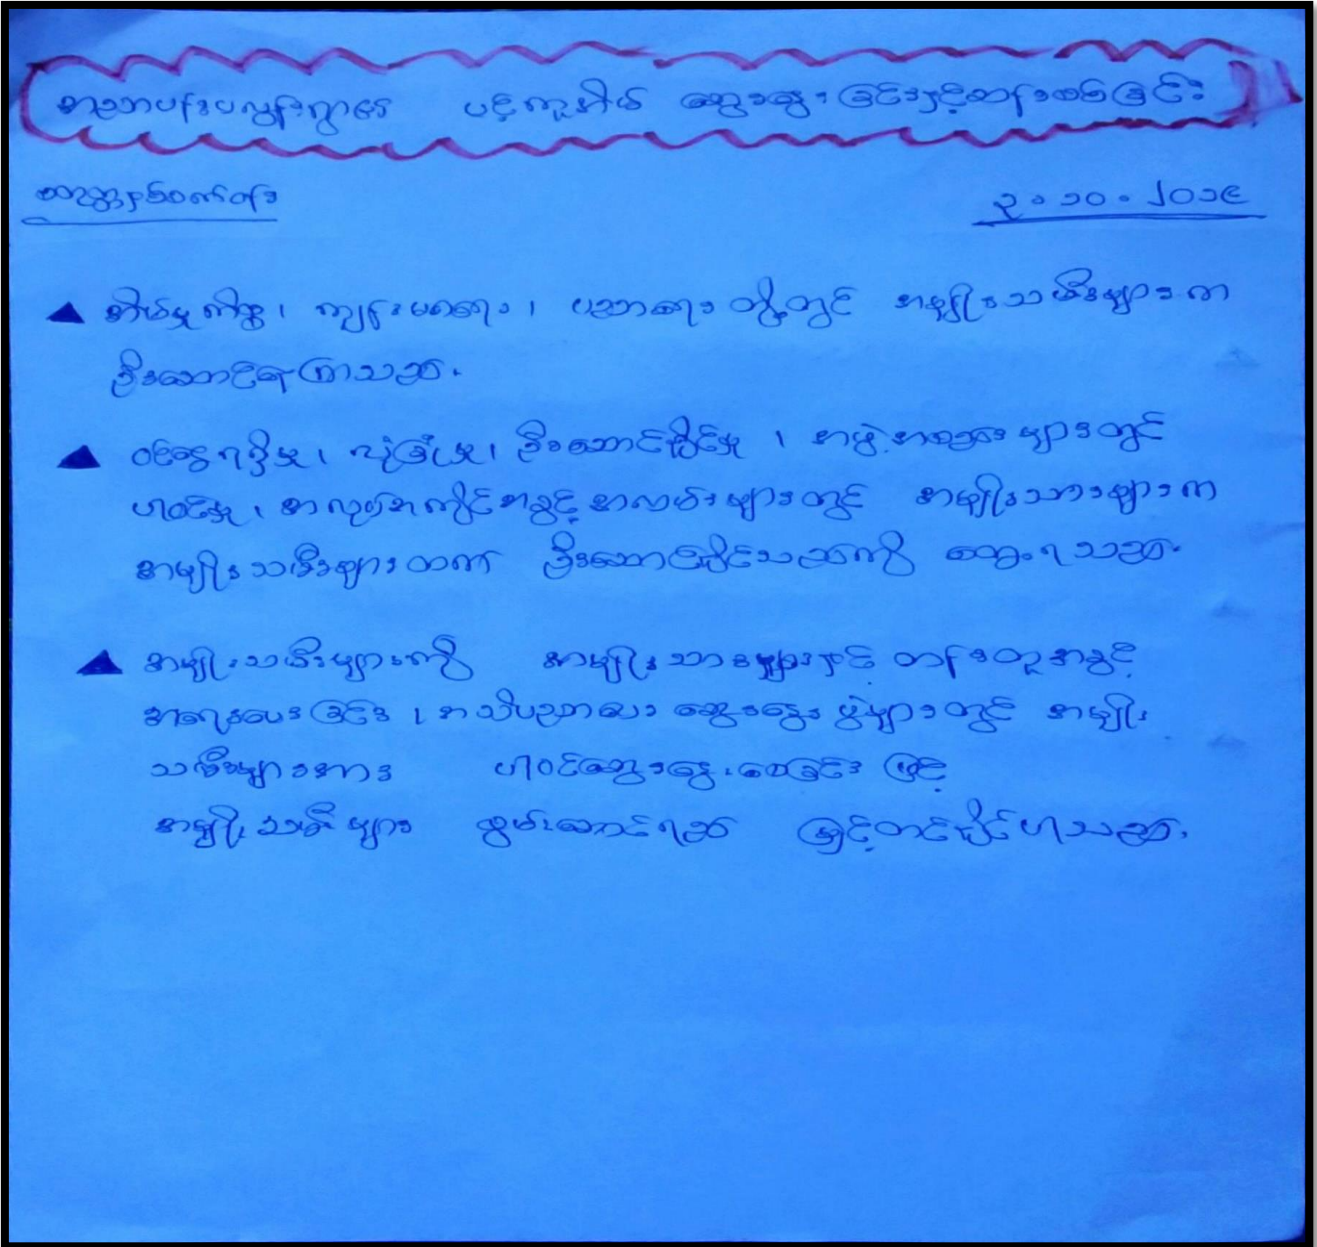 ပင့်ကူအိမ် ဆွေးနွေးခြင်းနှင့်ဆန်းစစ်ခြင်း
၃.၁၀.၂၀၁၉
အိမ်မှုကိစ္စ၊ ကျန်းမာရေး၊ ပညာရေး တို့တွင် အမျိုးသမီးများက
ဦးဆောင်နေကြသည်.
ဝင်ငွေရရှိမှု၊ လုံခြုံမှု၊ ဦးဆောင်နိုင်မှု ၊ အဖွဲ့အစည်းများတွင်
ပါဝင်မှု၊ အလုပ်အကိုင်အခွင့်အလမ်းများတွင် အမျိုးသားများက
အမျိုးသမီးများထက် ဦးဆောင်နိုင်သည်ကို တွေ့ရသည်.
အမျိုးသမီးများကို အမျိုးသားများနှင့် တန်းတူအခွင့်
အရေးပေးခြင်း၊ အသိပညာပေး ဆွေးနွေးပွဲများတွင် အမျိုး
သမီးများအား ပါဝင်ဆွေးနွေးစေခြင်း ဖြင့်
အမျိုးသမီးများ စွမ်းဆောင်ရည် မြှင့်တင်နိုင်ပါသည်.